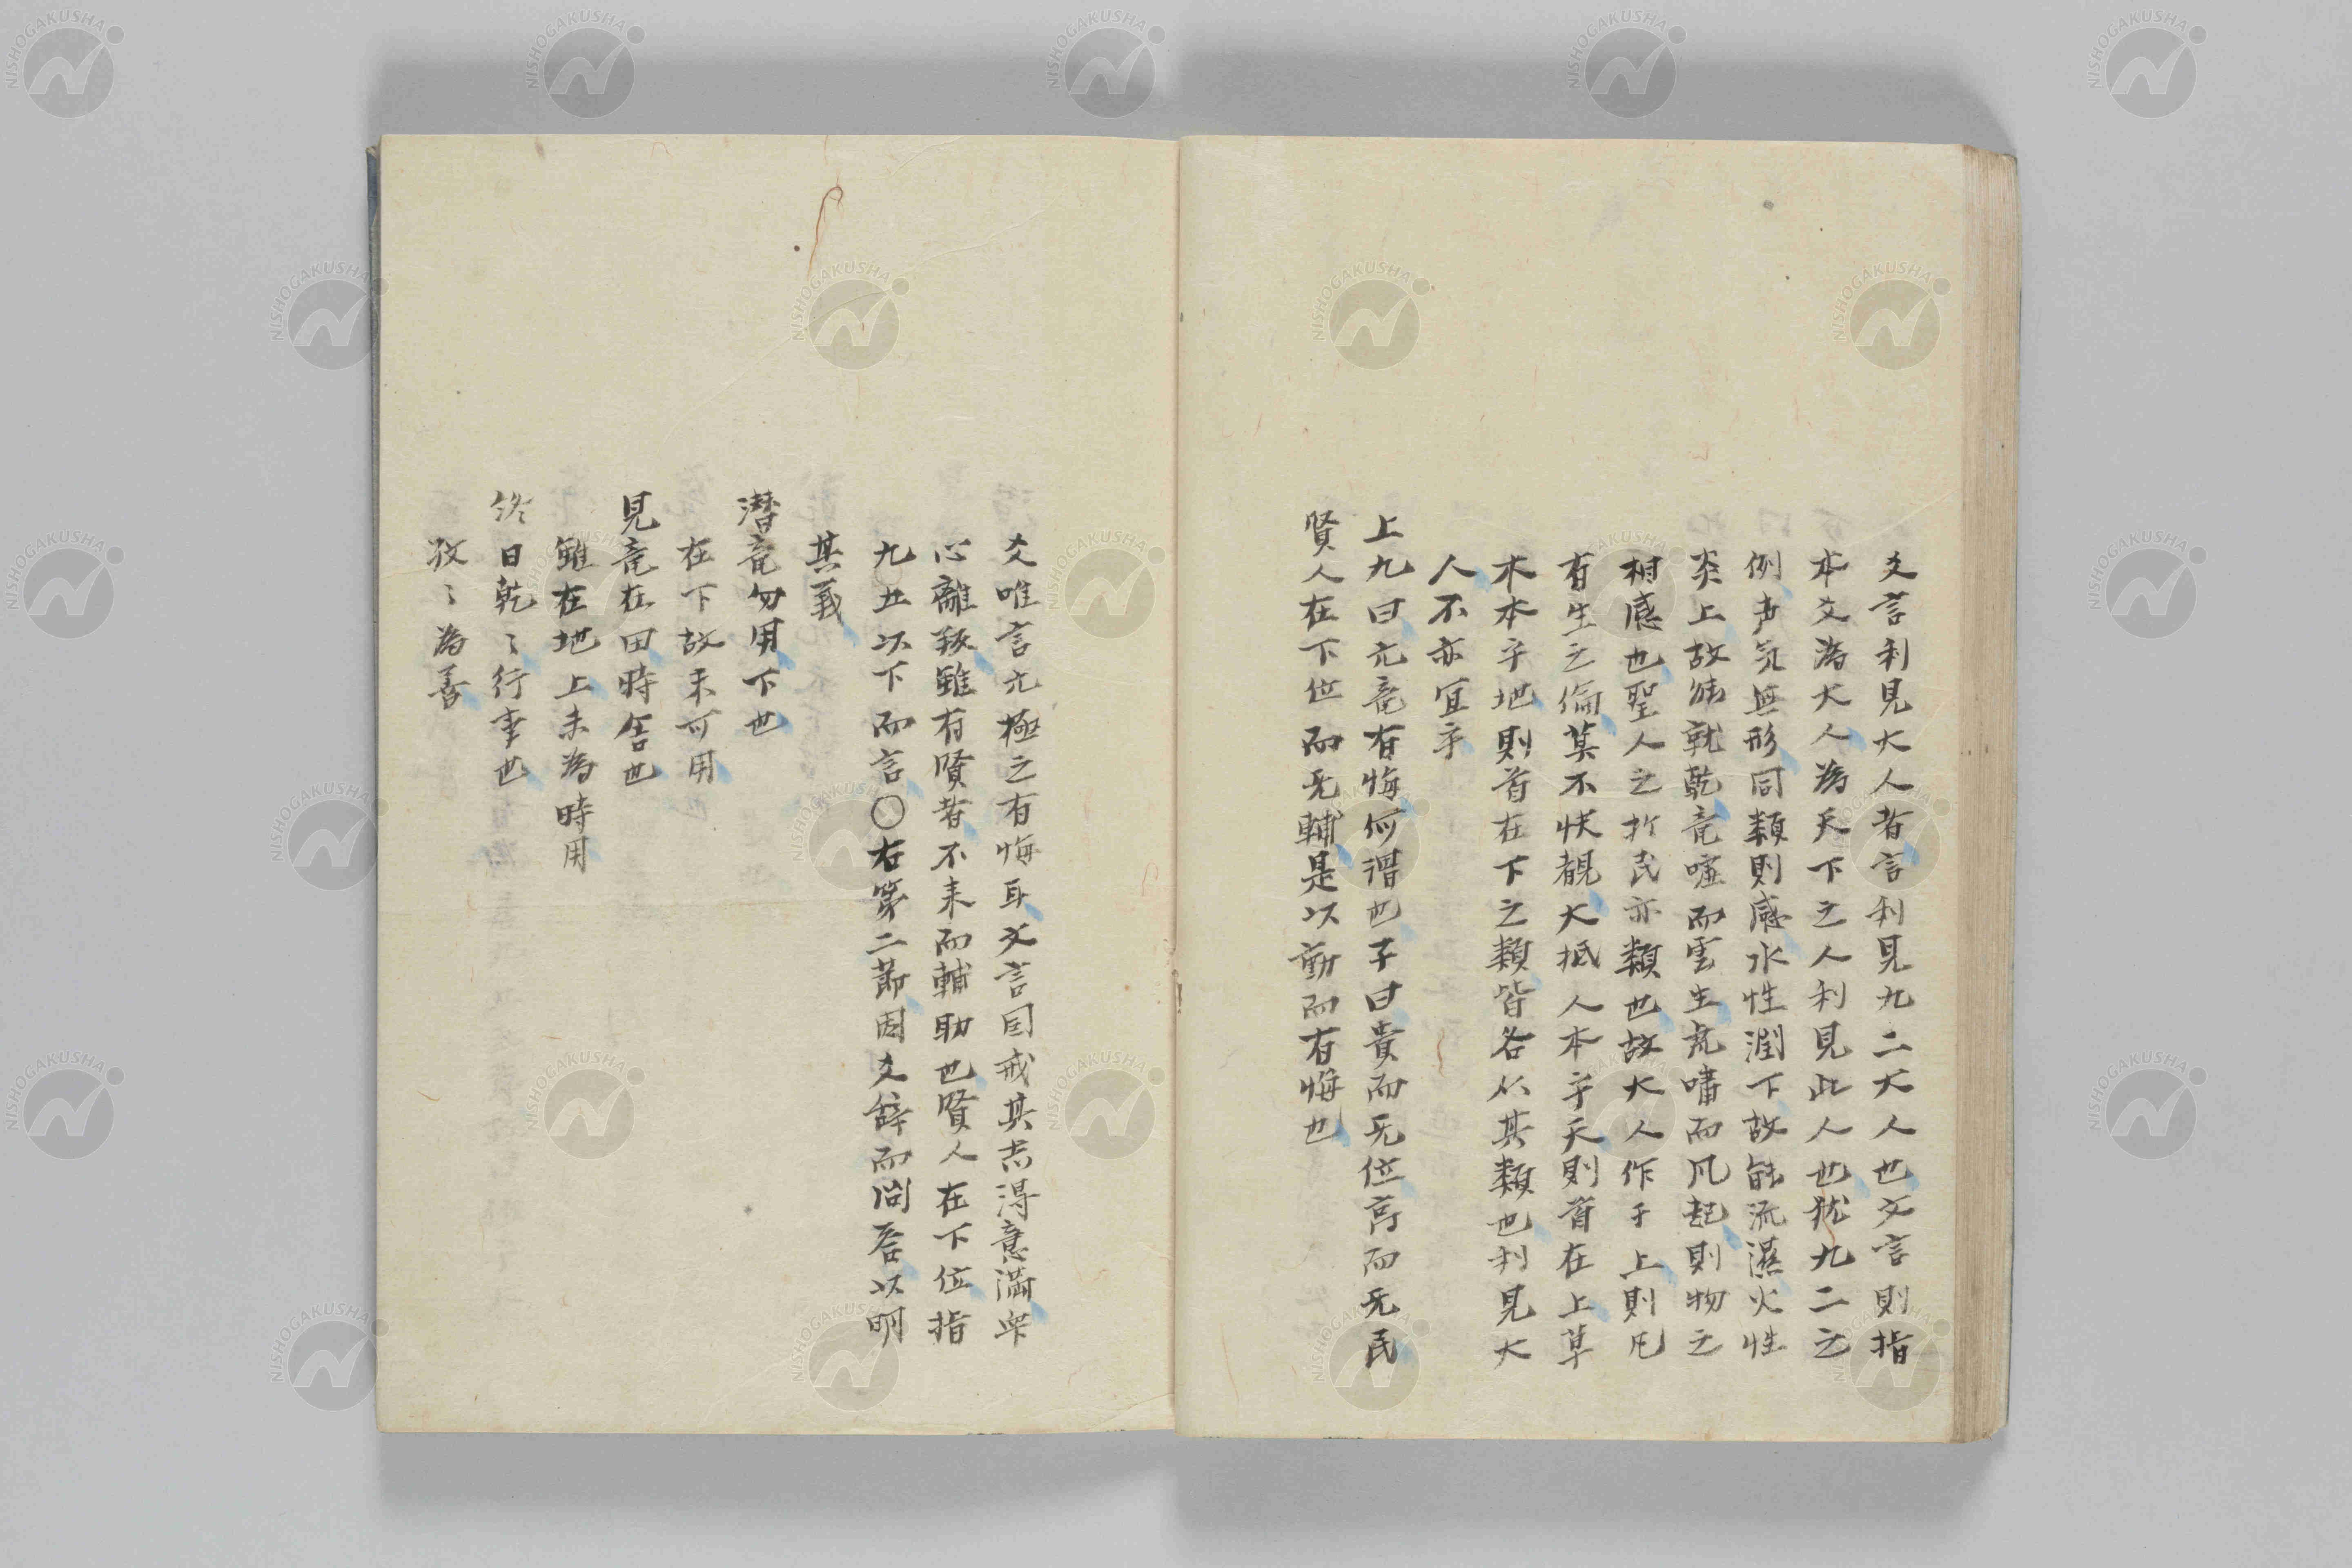 爻言利見大人者言利見九二大人也文言則指
本爻為大人為天下之人利見此人也猶九二之
例声気無形同類則感水性潤下故能流濕火性
炎上故能就乾竜嘘而雲生虎嘯而凡起則物之
相感也聖人之於民亦類也故大人作于上則凡
有生之倫莫不快覩大抵人本乎天則首在上草
木本乎地則首在下之類皆各从其類也利見大
人不亦宜乎
上九曰亢竜有悔何謂也子曰貴而无位高而无民
賢人在下位而无輔是以動而有悔也
爻唯言亢極之有悔耳文言因戒其志得意満衆
心離叛雖有賢者不来而輔助也賢人在下位指
九五以下而言〇右第二節因爻辞而問答以明
其義
潜竜勿用下也
在下故未可用
見竜在田時舎也
雖在地上未為時用
終日乾〻行事也
孜〻為善
NISHOGAKUSHA